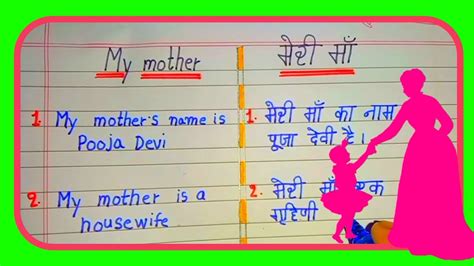 My mother
1. My mother's name is
Pooja Devi
2. My mother is a
housewife
मेरी माँ
1. मेरी माँ का नाम
पूजा देवी है।
2. मेरी माँ
गृहिणी